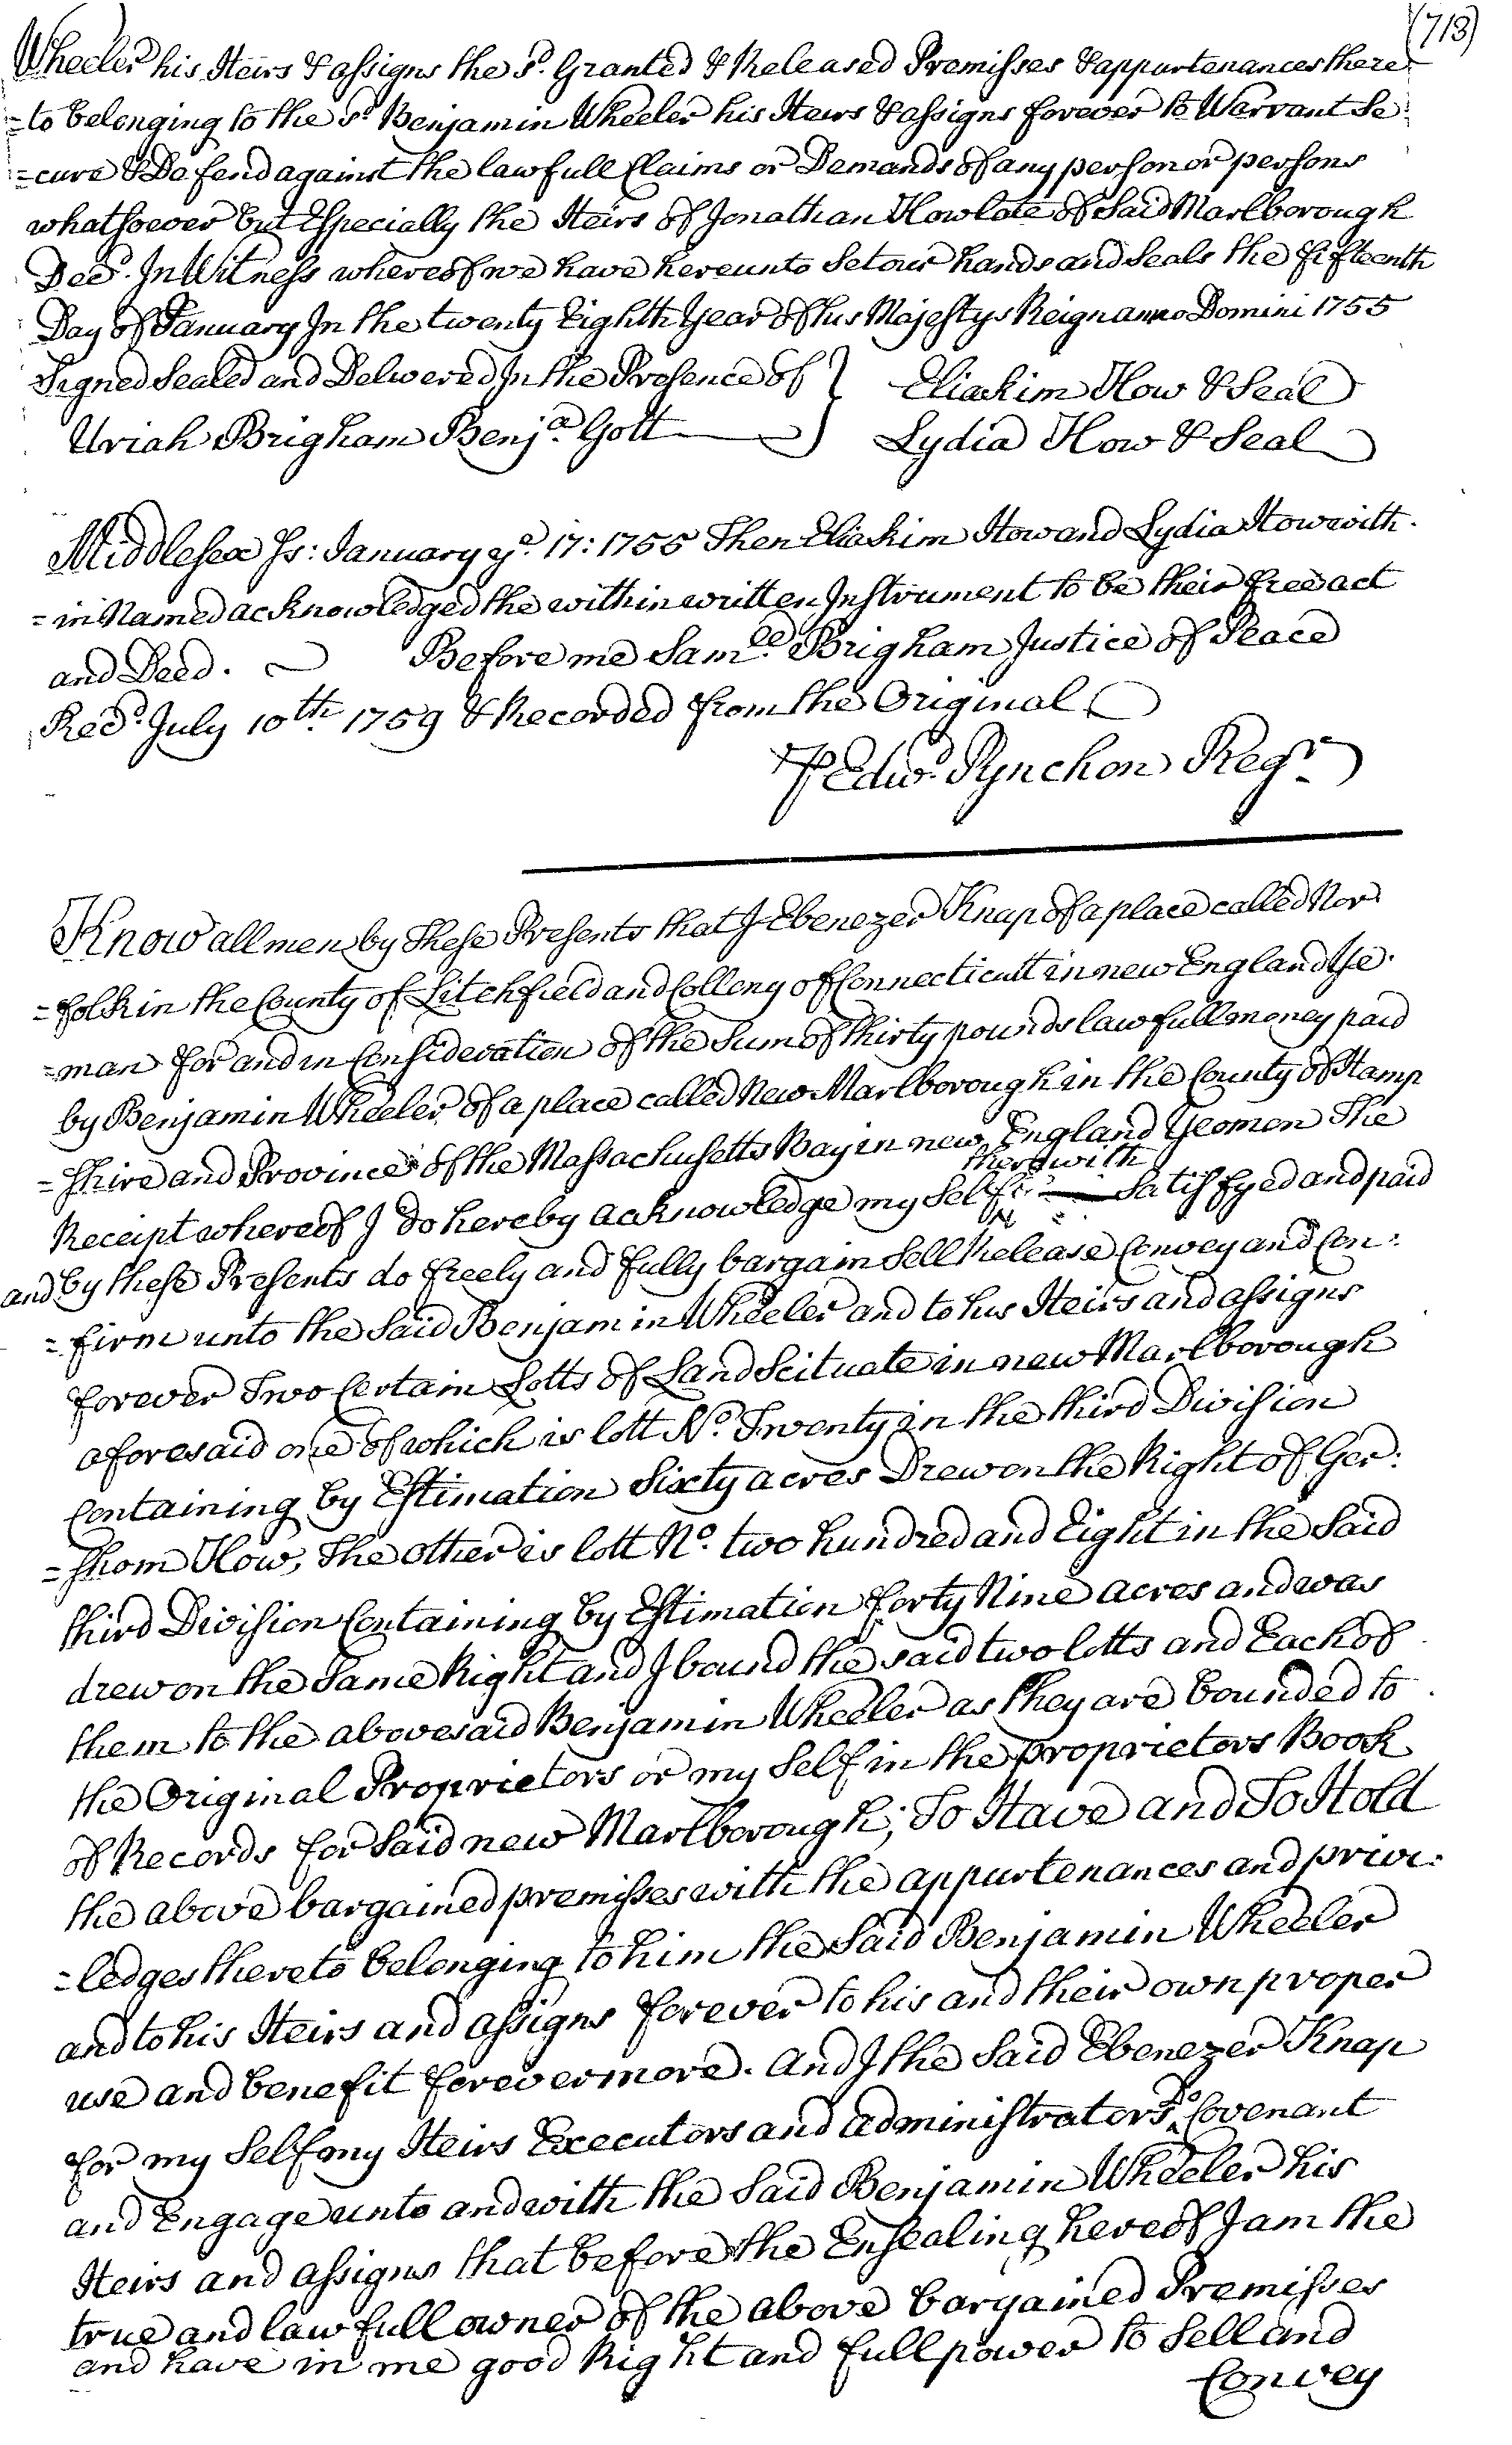 (713)
Wheeler his Heirs & assigns the sd. Granted & Released Premisses & appurtenances there
=to belonging to the sd. Benjamin Wheeler his Heirs & assigns forever to Warrant Se
=cure & Defend against the lawfull Claims or Demands of any person or persons
whatsoever but Especially the Heirs of Jonathan How late of Said Marlborough
Decd. In Witness whereof we have hereunto Set our hands and Seals the fifteenth
Day of January In the twenty Eighth Year of his Majestys Reign anno Domini 1755
Signed Sealed and Delivered In the Presence of } Eliakim How & Seal
Uriah Brigham Benja. Gott } Lydia How & Seal
Middlesex Ss: January ye. 17: 1755 Then Eliakim How and Lydia How with
=in Named acknowledged the within written Instrument to be their free act
and Deed. Before me Samll. Brigham Justice of Peace
Recd. July 10th. 1759 & Recorded from the Original
P Edwd. Pynchon Regr.
Know all men by These Presents that I Ebenezer Knap of a place called Nor
=folk in the County of Litchfield and Collony of Connecticutt in new England Ye
=man for and in Consideration of the Sum of thirty pounds lawfull money paid
by Benjamin Wheeler of a place called New Marlborough in the County of Hamp
=shire and Province of the Massachusetts Bay in new England Yeomen The
therewith
Receipt whereof I do hereby acknowledge my Self Satisfyed and paid
and by these Presents do freely and fully bargain Sell Release Convey and Con:
=firm unto the Said Benjamin Wheeler and to his Heirs and assigns
forever Two Certain Lotts of Land Scituate in new Marlborough
aforesaid one of which is lott No. Twenty in the third Division
Containing by Estimation Sixty acres Drew on the Right of Ger:
=shom How, The other is lott No. two hundred and Eight in the Said
third Division Containing by Estimation forty Nine acres and was
drew on the Same Right and I bound the said two lotts and Each of
them to the abovesaid Benjamin Wheeler as they are bounded to
the Original Proprietors or my Self in the proprietors Book
of Records for Said new Marlborough; To Have and To Hold
the above bargained premisses with the appurtenances and privi:
=ledges thereto belonging to him the Said Benjamin Wheeler
and to his Heirs and assigns forever to his and their own proper
use and benefit forevermore. And I the Said Ebenezer Knap
do
for my Self my Heirs Executors and administrators Covenant
and Engage unto and with the Said Benjamin Wheeler his
Heirs and assigns that before the Ensealing hereof I am the
true and lawfull owner of the above bargained Premisses
and have in me good Right and full power to Sell and
Convey